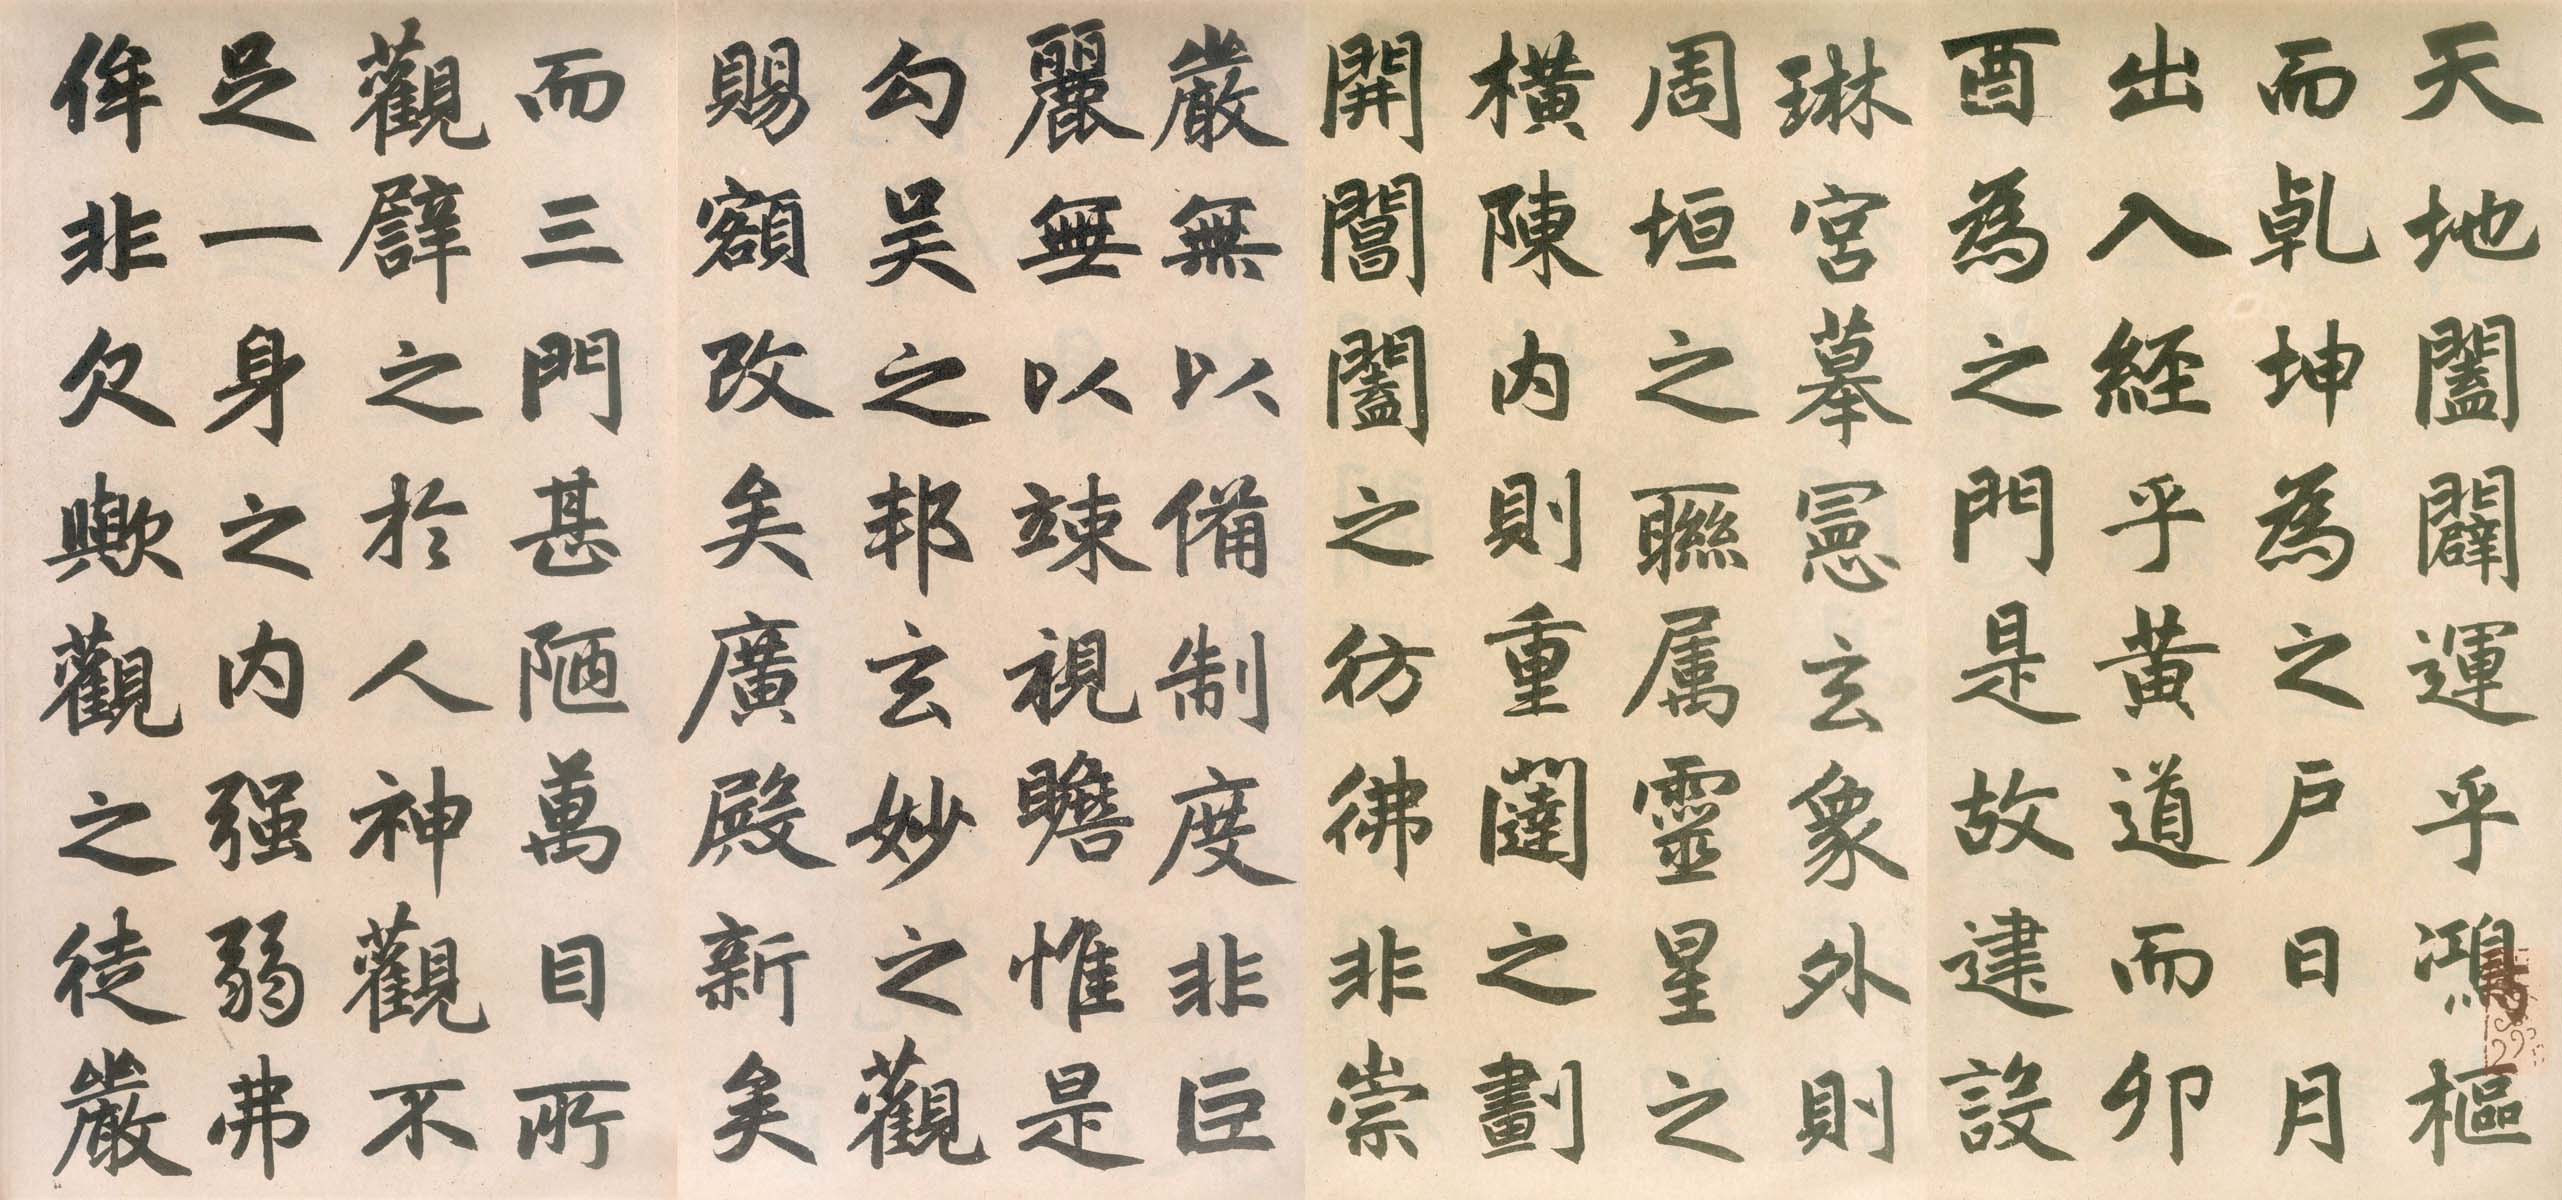 天地闔闢運乎鴻樞
而乹坤為之户日月
出入経乎黄道而夘
酉為之門是故建設
琳宮摹憲玄象外則
周垣之聯属靈星之
橫陳内則重闥之劃
開閶闔之彷彿非崇
嚴無以備制度非巨
麗無以竦視瞻惟是
勾吴之邦玄妙之觀
賜額改矣廣殿新矣
而三門甚陋萬目所
觀譬之於人神觀不
足一身之内强弱弗
侔非欠歟觀之徒嚴